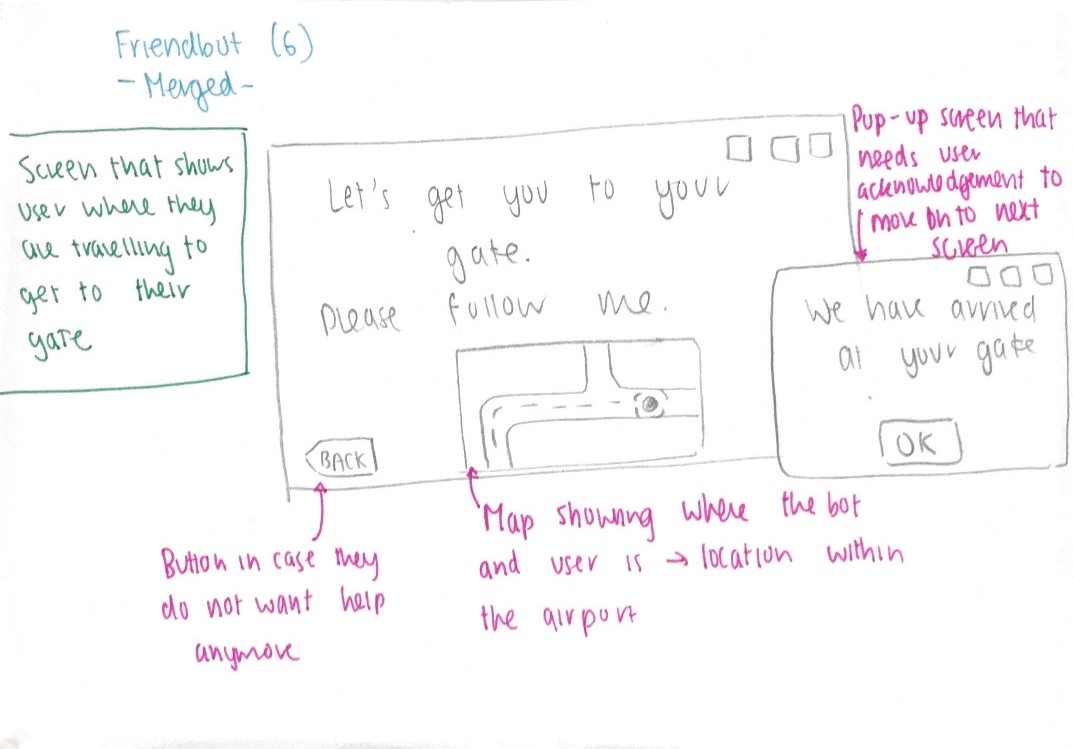 Friendbot (6)
- Merged -
Screen that shows
user where they
are travelling to
get to their
gate
Let's get you to your
gate.
Please follow me.
BACK
Pop-up screen that
needs user
acknowledgement to
move on to next
screen
We have arrived
at your gate
OK
Button in case they
do not want help
anymore
Map showing where the bot
and user is → location within
the airport